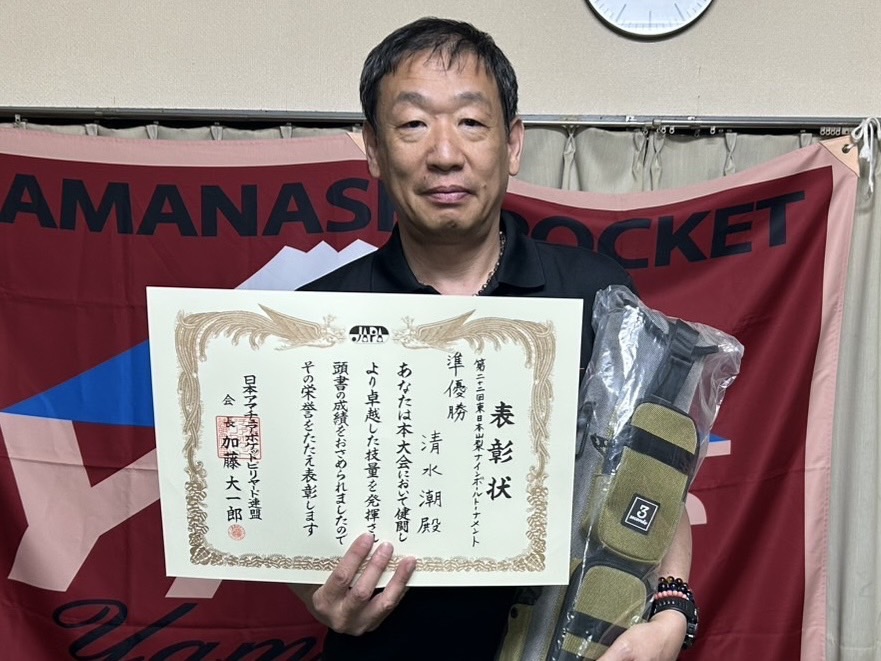 AMANASH
POCKET
JAPA
表彰状
第二十二回東日本山梨ナインボールトーナメント
準優勝
清水潮殿
あなたは本大会において健闘し
より卓越した技量を発揮され
頭書の成績をおさめられましたので
その栄誉をたたえ表彰します
日本アマチュアポケットビリヤード連盟
会長 加藤大一郎
3
Yam